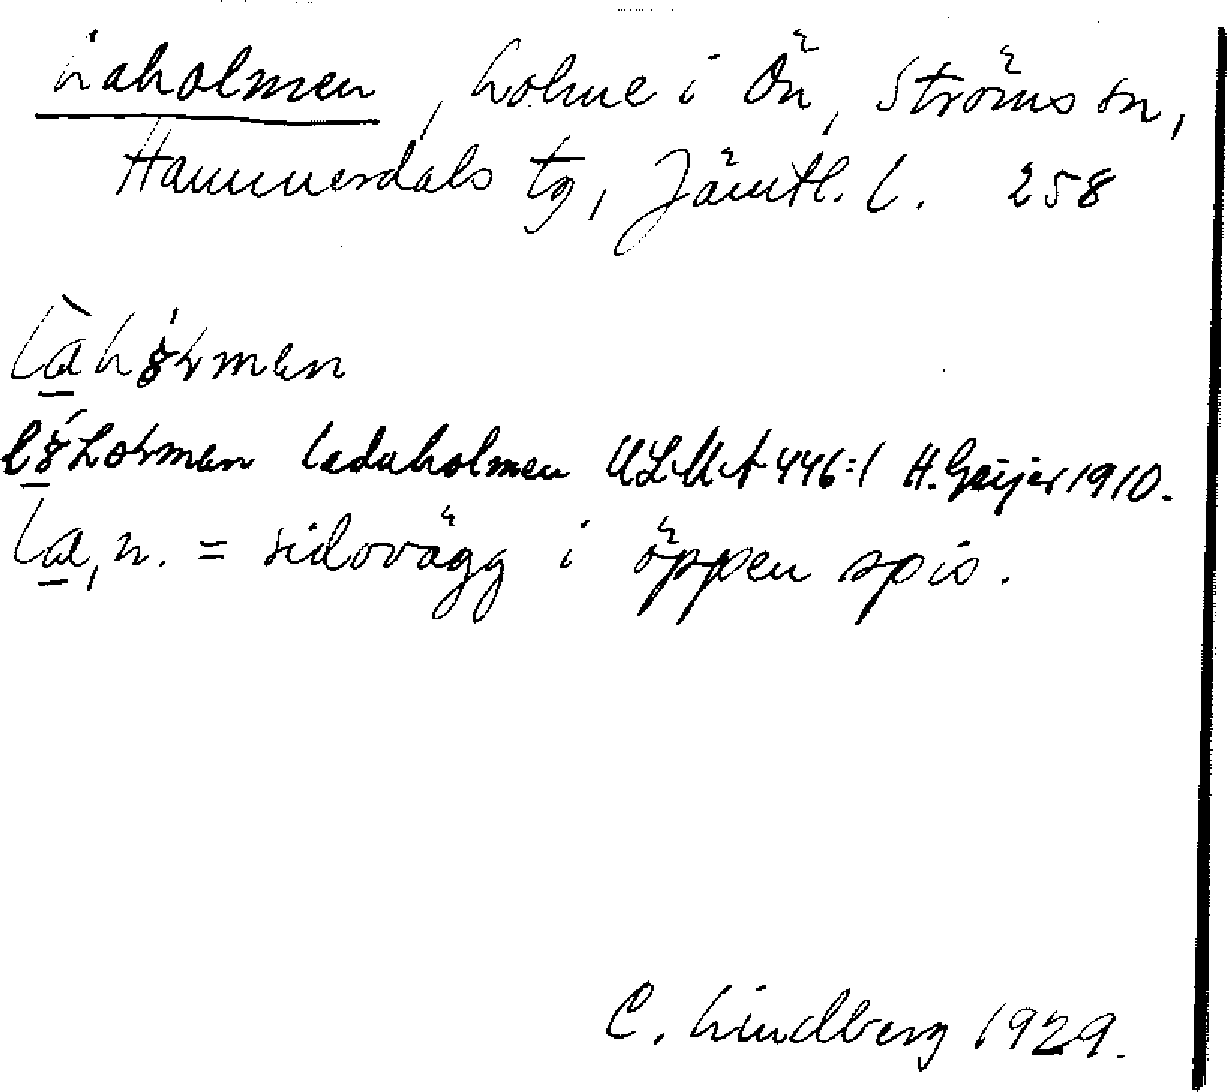 Laholmen, holme i Ön, Ströms sn,
Hammerdals tg, Jämtl. l. 258
laduholmen ULMA 446:1 H. Geijer 1910.
la, n. = sidovägg i öppen spis.
C. Lindberg 1929.